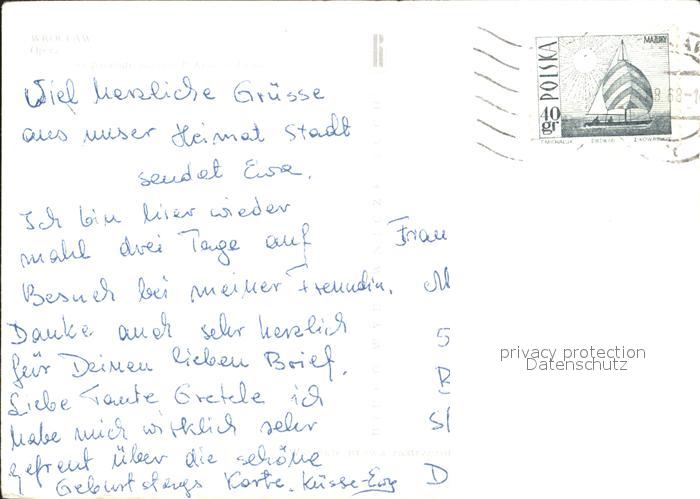 WROCŁAW
Opera
Viel herzliche Grüsse
aus unser Heimat Stadt
sendet Ewa.
Ich bin hier wieder
mahl drei Tage auf
Besuch bei meiner Freundin.
Danke auch sehr herzlich
für Deinen lieben Brief.
Liebe Tante Gretele ich
habe mich wirklich sehr
gefreut über die schöne
Geburtstags Karte. Küsse-Ewa
Frau
M
5
B
Sl
D
POLSKA
40 gr
MAZURY
privacy protection
Datenschutz